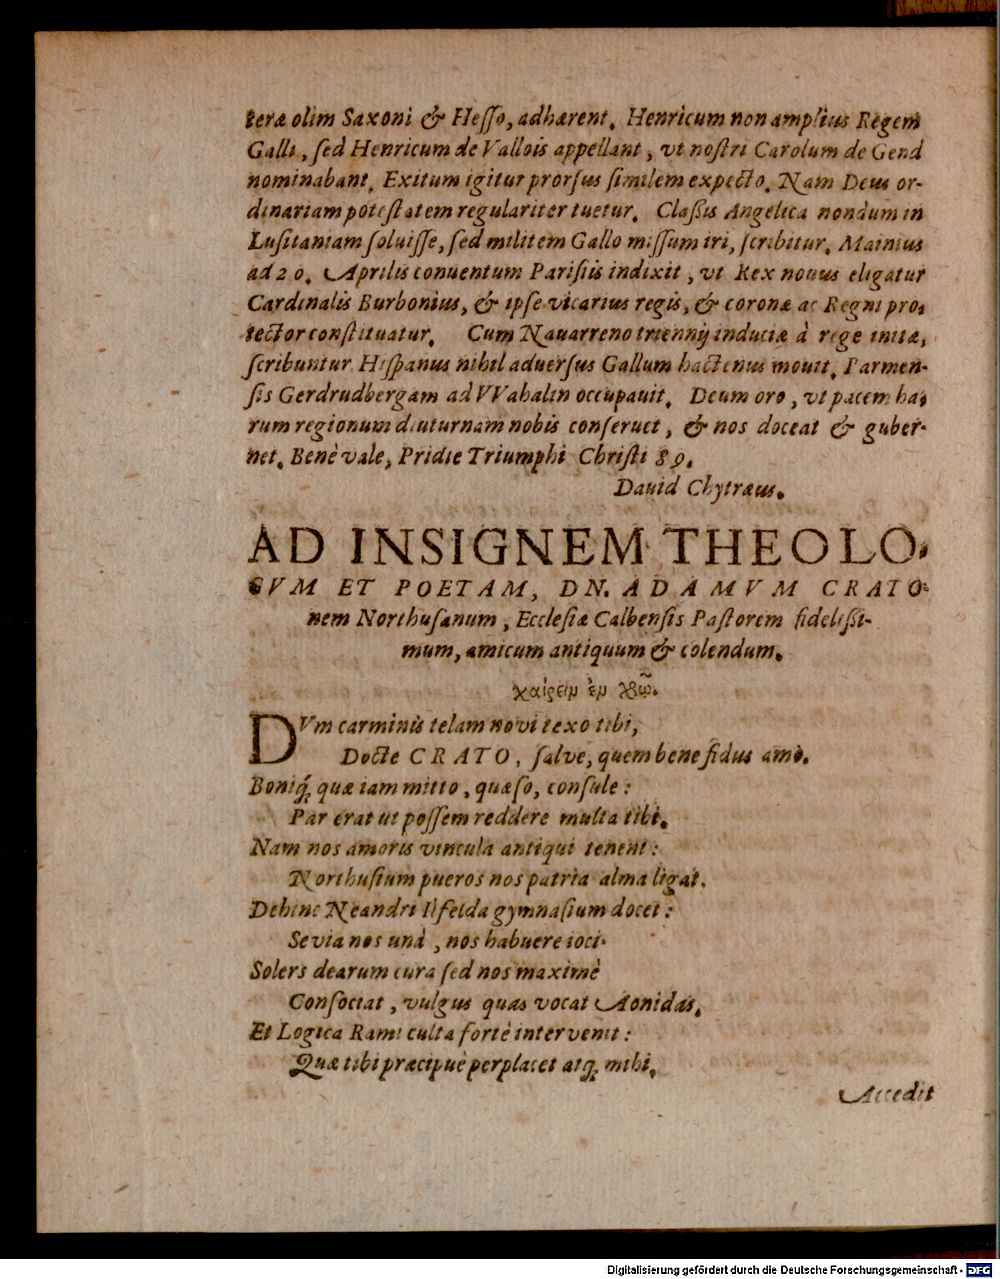 teræ olim Saxoni & Heſſo, adhærent. Henricum non amplius Regem
Galli, ſed Henricum de Vallois appellant, vt noſtri Carolum de Gend
nominabant. Exitum igitur prorſus ſimilem expecto. Nam Deus or-
dinariam poteſtatem regulariter tuetur. Claßis Angelica nondum in
Luſitaniam ſoluiſſe, ſed militem Gallo miſſum iri, ſcribitur. Mainius
ad 20. Aprilis conuentum Pariſiis indixit, vt Rex nouus eligatur
Cardinalis Burbonius, & ipſe vicarius regis, & coronæ ac Regni pro-
tector conſtituatur. Cum Nauarreno triennij induciæ à rege initæ,
ſcribuntur. Hiſpanus nihil aduerſus Gallum hactenus mouit. Parmen-
ſis Gerdrudbergam ad VVahalin occupauit. Deum oro, vt pacem ha-
rum regionum diuturnam nobis conſeruet, & nos doceat & guber-
net. Benè vale, Pridie Triumphi Chriſti 89.
Dauid Chytræus.
AD INSIGNEM THEOLO-
GVM ET POETAM, DN. ADAMVM CRATO-
nem Northuſanum, Eccleſiæ Calbenſis Paſtorem fideliſſi-
mum, amicum antiquum & colendum.
χαίρειν ἐν χῷ.
DVm carminis telam novi texo tibi,
Docte CRATO, ſalve, quem bene fidus amo.
Boniq́; quæ iam mitto, quæſo, conſule:
Par erat ut poſſem reddere multa tibi.
Nam nos amoris vincula antiqui tenent:
Northuſium pueros nos patria alma ligat.
Dehinc Neandri Ilfelda gymnaſium docet:
Sevia nos unà, nos habuere ioci.
Solers dearum cura ſed nos maximè
Conſociat, vulgus quas vocat Aonidas.
Et Logica Rami culta fortè intervenit:
Quæ tibi præcipuè perplacet atq; mihi.
Accedit
Digitalisierung gefördert durch die Deutsche Forschungsgemeinschaft - DFG